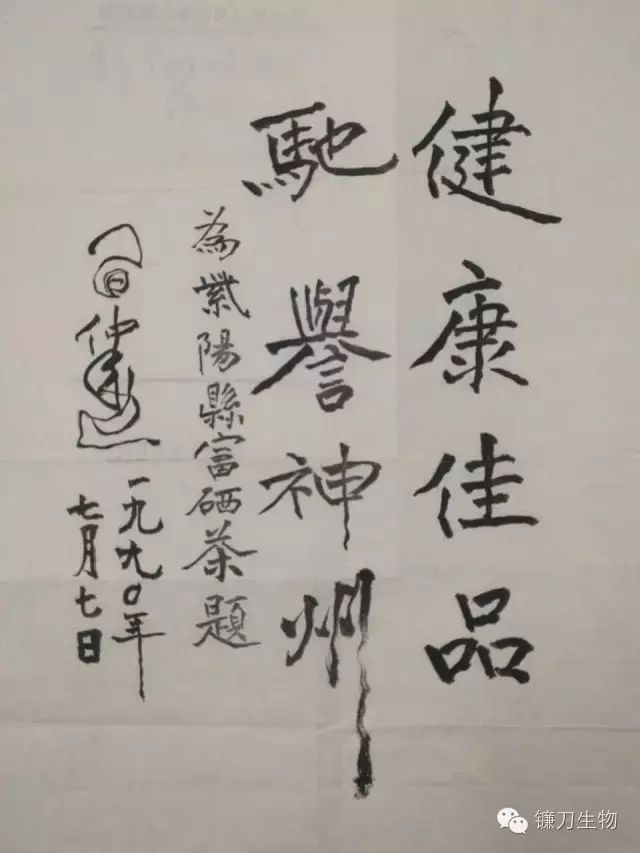 健康佳品
馳譽神州
為紫陽縣富硒茶題
仲
一九九〇年
七月七日
镰刀生物